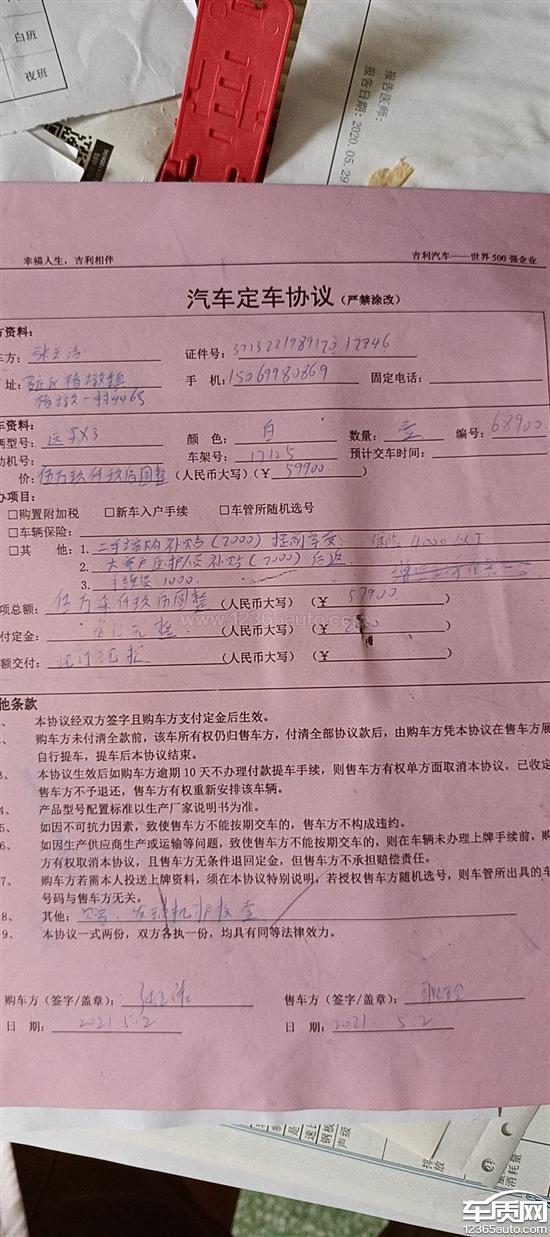 白班
夜班
报告医师:
报告日期: 2020.05.29
幸福人生，吉利相伴
吉利汽车——世界500强企业
汽车定车协议（严禁涂改）
方资料:
车方:
证件号:
址:
手 机: 15069980869
固定电话:
车资料:
辆型号: 远景X3
颜 色: 白
数量: 壹
编号: 68900
动机号:
车架号: 17125
预计交车时间:
价: 伍万玖仟玖佰圆整 （人民币大写）（￥ 59900 ）
办项目:
□购置附加税 □新车入户手续 □车管所随机选号
□车辆保险:
□其 他: 1. 二手 补贴（7000）
2. 大客户医护人员补贴（7000）后返
3. 手续费1000
项总额: 伍万柒仟玖佰圆整 （人民币大写）（￥ 57900 ）
付定金: （人民币大写）（￥ ）
额交付: （人民币大写）（￥ ）
他条款
、 本协议经双方签字且购车方支付定金后生效。
、 购车方未付清全款前，该车所有权仍归售车方，付清全部协议款后，由购车方凭本协议在售车方展
自行提车，提车后本协议结束。
3、 本协议生效后如购车方逾期10天不办理付款提车手续，则售车方有权单方面取消本协议，已收定
售车方不予退还，售车方有权重新安排该车辆。
4、 产品型号配置标准以生产厂家说明书为准。
5、 如因不可抗力因素，致使售车方不能按期交车的，售车方不构成违约。
6、 如因生产供应商生产或运输等问题，致使售车方不能按期交车的，则在车辆未办理上牌手续前，购
方有权取消本协议，且售车方无条件退回定金，但售车方不承担赔偿责任。
7、 购车方若需本人投送上牌资料，须在本协议特别说明，若授权售车方随机选号，则车管所出具的车
号码与售车方无关。
8、 其他: 发动机护板壹
9、 本协议一式两份，双方各执一份，均具有同等法律效力。
购车方（签字/盖章）:
售车方（签字/盖章）:
日 期: 2021.5.2
日 期: 2021.5.2
www.12365auto.com
车质网
12365auto.com